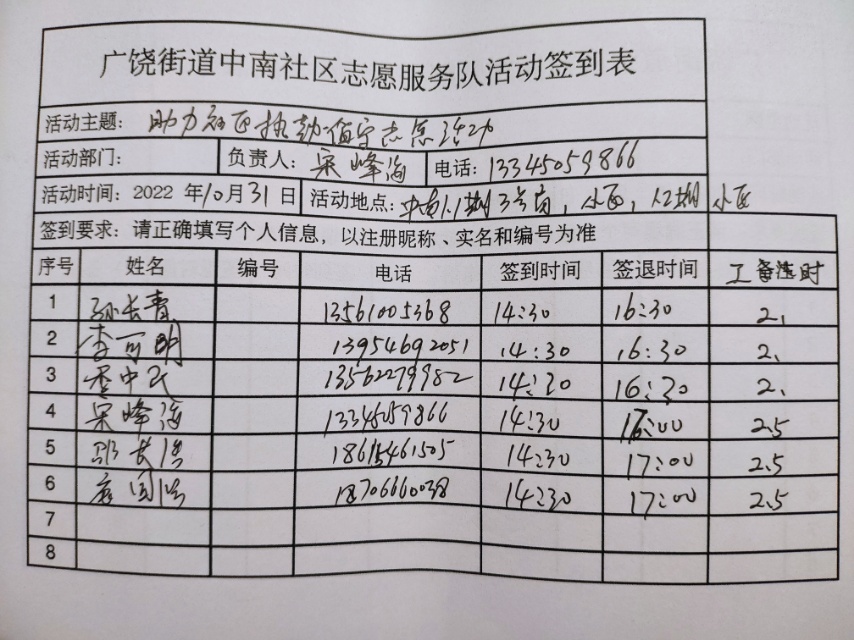 广饶街道中南社区志愿服务队活动签到表
活动主题: 助力社区执勤值守志愿活动
活动部门: 负责人: 宋峰海 电话: 13345059866
活动时间: 2022 年10月31日 活动地点: 小区, 小区
签到要求: 请正确填写个人信息, 以注册昵称、实名和编号为准
序号 姓名 编号 电话 签到时间 签退时间 工时 备注
1 孙长青 13561005368 14:30 16:30 2.
2 李可明 13954692051 14:30 16:30 2.
3 李中民 13562279982 14:30 16:30 2.
4 宋峰海 13345059866 14:30 17:00 2.5
5 18615461505 14:30 17:00 2.5
6 18706660038 14:30 17:00 2.5
7
8